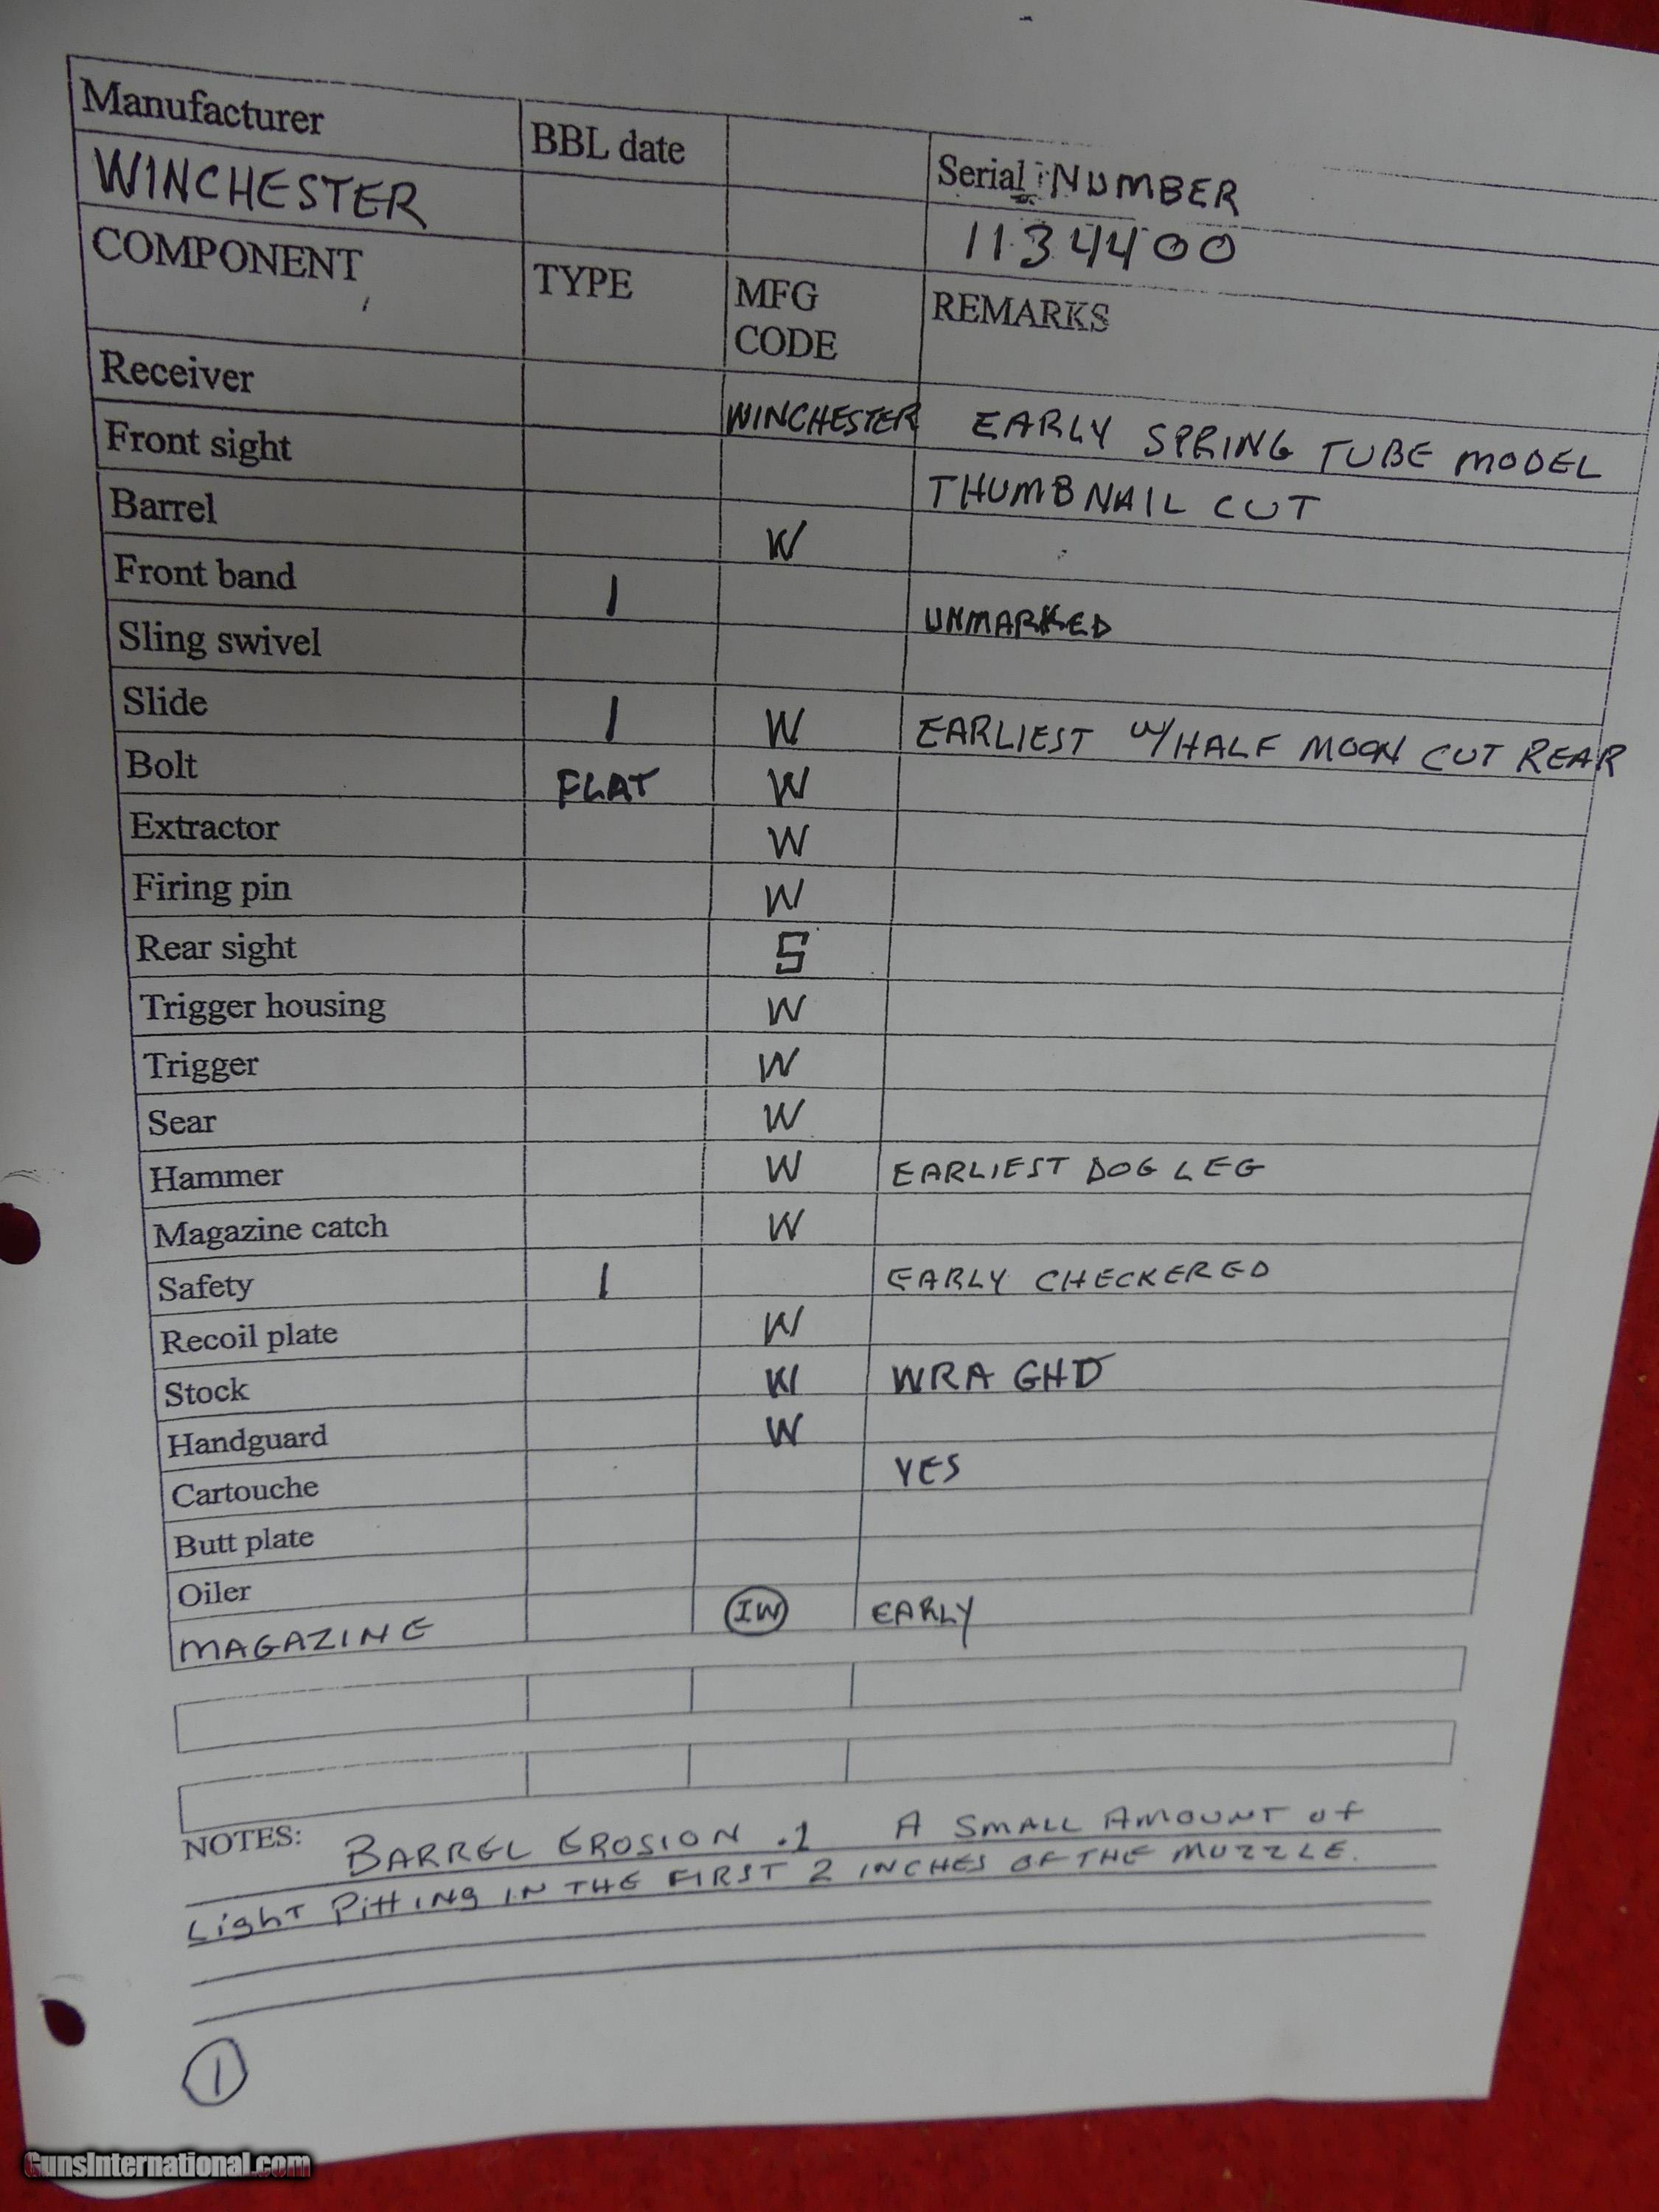 Manufacturer BBL date Serial NUMBER
WINCHESTER 1134400
COMPONENT TYPE MFG CODE REMARKS
Receiver WINCHESTER EARLY SPRING TUBE MODEL
Front sight THUMBNAIL CUT
Barrel W
Front band 1 UNMARKED
Sling swivel
Slide 1 W EARLIEST W/HALF MOON CUT REAR
Bolt FLAT W
Extractor W
Firing pin W
Rear sight S
Trigger housing W
Trigger W
Sear W
Hammer W EARLIEST DOG LEG
Magazine catch W
Safety 1 EARLY CHECKERED
Recoil plate W
Stock W WRA GHD
Handguard W
Cartouche YES
Butt plate
Oiler
MAGAZINE IW EARLY
NOTES: BARREL EROSION .1 A SMALL AMOUNT of
Light Pitting IN THE FIRST 2 INCHES OF THE MUZZLE.
1
GunsInternational.com